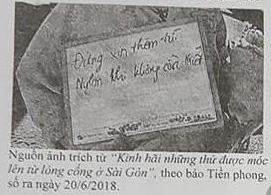 Đừng xin thêm tôi.
Ngôn khi không còn
Nguồn ảnh trích từ "Kinh hãi những thứ được móc
lên từ lòng cống ở Sài Gòn", theo báo Tiền phong,
số ra ngày 20/6/2018.